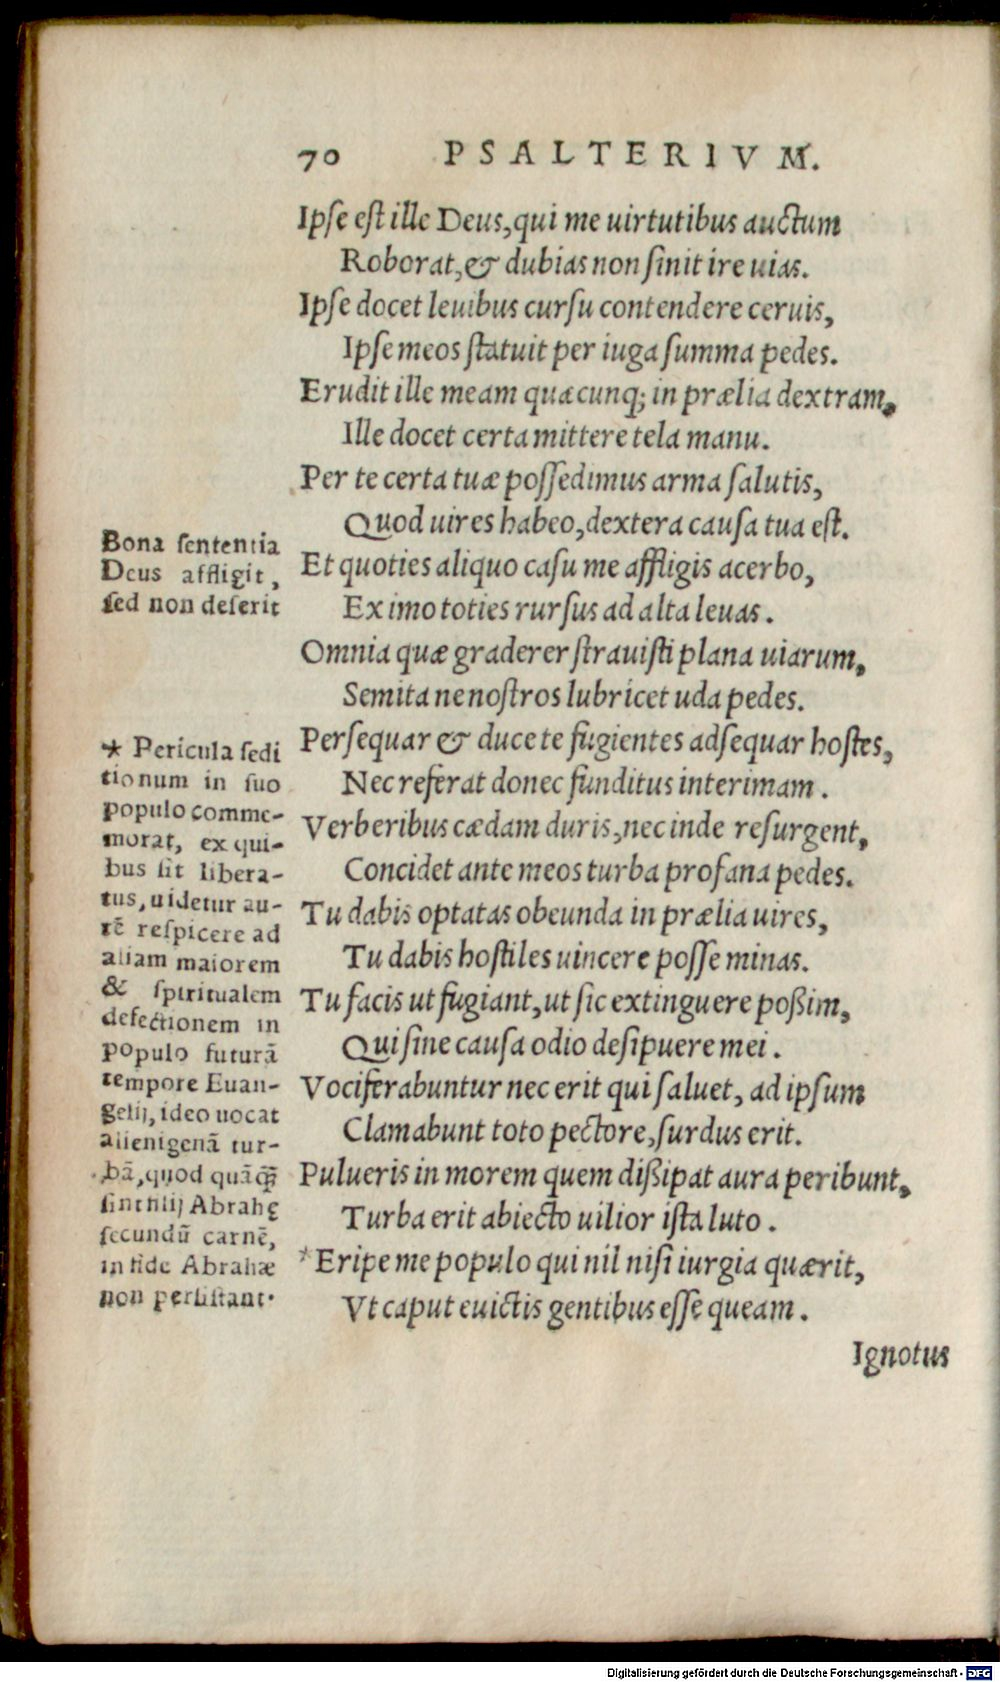 70 PSALTERIVM.
Ipſe eſt ille Deus, qui me uirtutibus auctum
Roborat, & dubias non ſinit ire uias.
Ipſe docet leuibus curſu contendere ceruis,
Ipſe meos ſtatuit per iuga ſumma pedes.
Erudit ille meam quacunq; in prælia dextram,
Ille docet certa mittere tela manu.
Per te certa tuæ poſſedimus arma ſalutis,
Quod uires habeo, dextera cauſa tua eſt.
Et quoties aliquo caſu me affligis acerbo,
Ex imo toties rurſus ad alta leuas.
Omnia quæ graderer ſtrauiſti plana uiarum,
Semita ne noſtros lubricet uda pedes.
Perſequar & duce te fugientes adſequar hoſtes,
Nec referat donec funditus interimam.
Verberibus cædam duris, nec inde reſurgent,
Concidet ante meos turba profana pedes.
Tu dabis optatas obeunda in prælia uires,
Tu dabis hoſtiles uincere poſſe minas.
Tu facis ut fugiant, ut ſic extinguere poßim,
Qui ſine cauſa odio deſipuere mei.
Vociferabuntur nec erit qui ſaluet, ad ipſum
Clamabunt toto pectore, ſurdus erit.
Pulueris in morem quem dißipat aura peribunt,
Turba erit abiecto uilior iſta luto.
*Eripe me populo qui nil niſi iurgia quærit,
Vt caput euictis gentibus eſſe queam.
Ignotus
Bona ſententia
Deus affligit,
ſed non deſerit
* Pericula ſedi
tionum in ſuo
populo comme-
morat, ex qui-
bus ſit libera-
tus, uidetur au-
tē reſpicere ad
aliam maiorem
& ſpiritualem
defectionem in
populo futurā
tempore Euan-
gelij, ideo uocat
alienigenā tur-
bā, quod quāꝗ̃
ſint filij Abrahę
ſecundū carnē,
in fide Abrahæ
non perſiſtant.
Digitalisierung gefördert durch die Deutsche Forschungsgemeinschaft - DFG